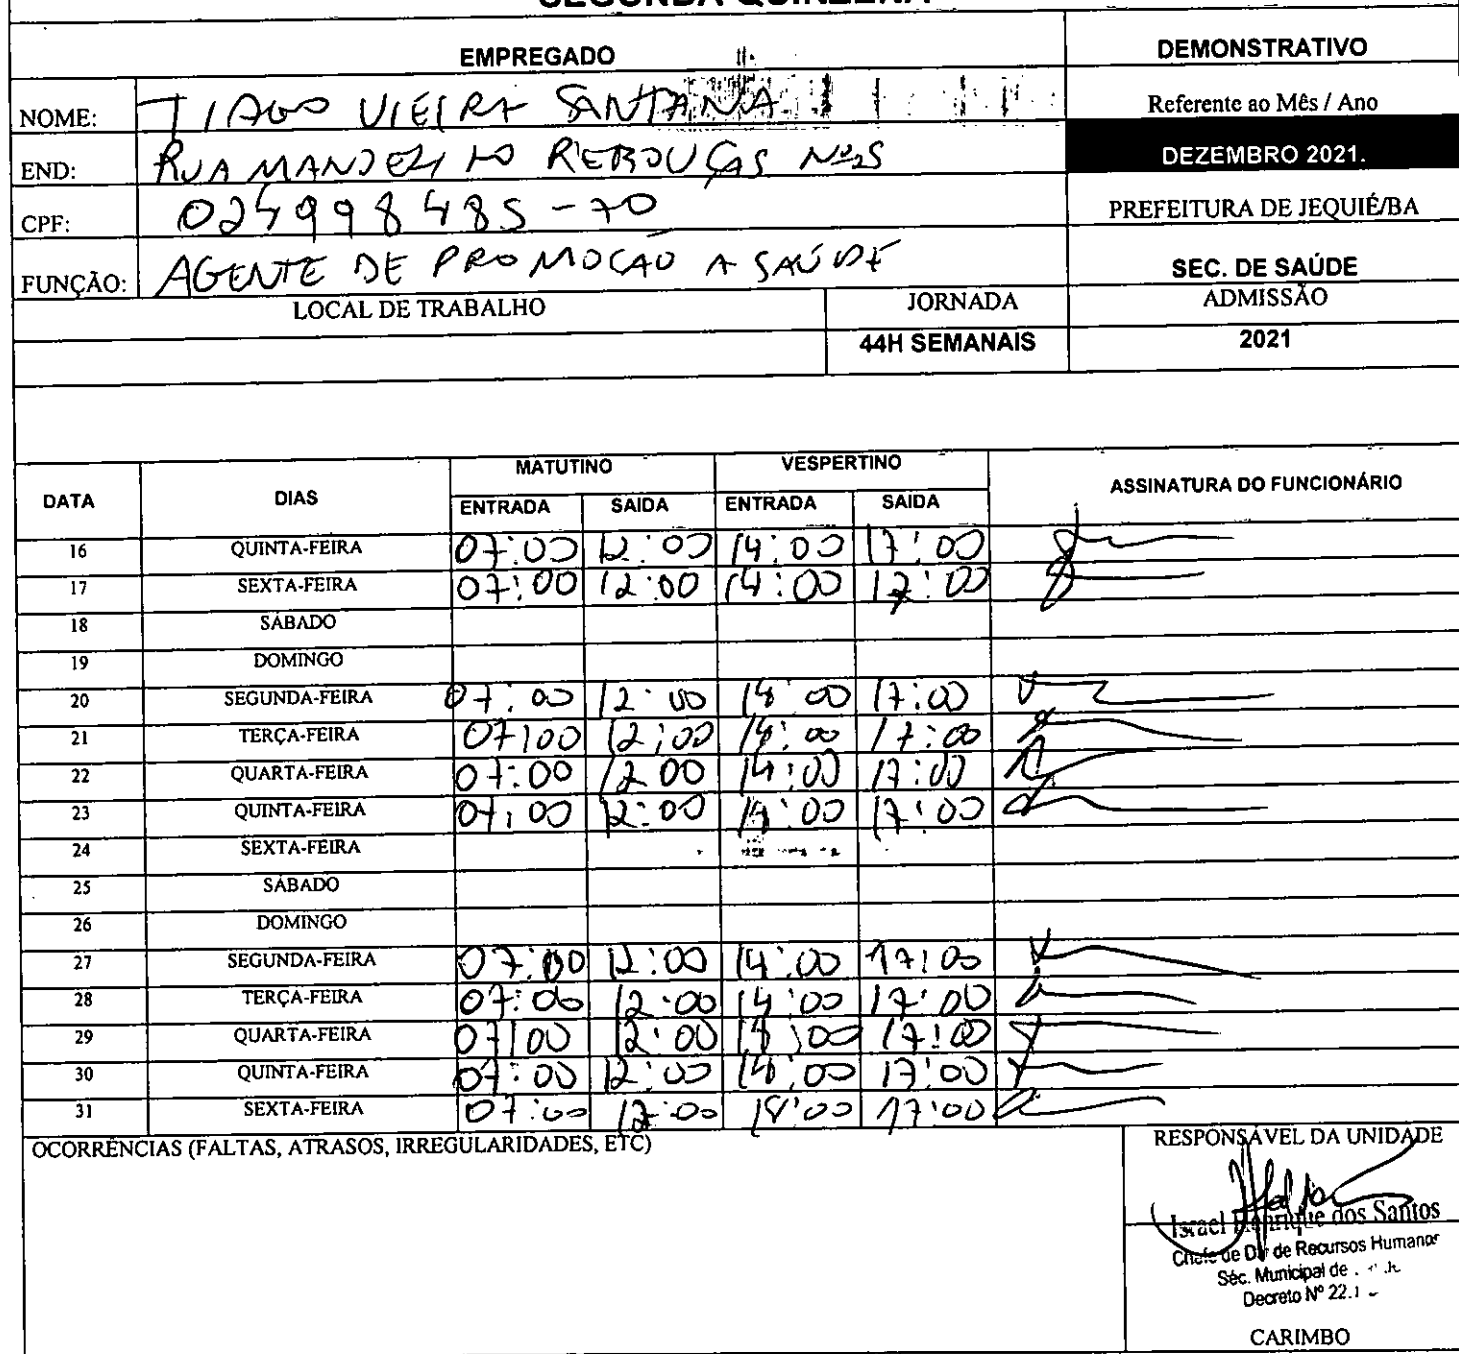 SEGUNDA QUINZENA
EMPREGADO DEMONSTRATIVO
NOME: TIAGO VIEIRA SANTANA Referente ao Mês / Ano
END: RUA REBOUÇAS DEZEMBRO 2021.
CPF: 024998485-70 PREFEITURA DE JEQUIÉ/BA
FUNÇÃO: AGENTE DE PROMOCAO A SAÚDE SEC. DE SAÚDE
LOCAL DE TRABALHO JORNADA ADMISSÃO
44H SEMANAIS 2021
MATUTINO VESPERTINO
DATA DIAS ENTRADA SAIDA ENTRADA SAIDA ASSINATURA DO FUNCIONÁRIO
16 QUINTA-FEIRA 07:00 12:00 14:00 17:00
17 SEXTA-FEIRA 07:00 12:00 14:00 17:00
18 SÁBADO
19 DOMINGO
20 SEGUNDA-FEIRA 07:00 12:00 14:00 17:00
21 TERÇA-FEIRA 07:00 12:00 14:00 17:00
22 QUARTA-FEIRA 07:00 12:00 14:00 17:00
23 QUINTA-FEIRA 07:00 12:00 14:00 17:00
24 SEXTA-FEIRA
25 SÁBADO
26 DOMINGO
27 SEGUNDA-FEIRA 07:00 12:00 14:00 17:00
28 TERÇA-FEIRA 07:00 12:00 14:00 17:00
29 QUARTA-FEIRA 07:00 12:00 14:00 17:00
30 QUINTA-FEIRA 07:00 12:00 14:00 17:00
31 SEXTA-FEIRA 07:00 12:00 14:00 17:00
OCORRÊNCIAS (FALTAS, ATRASOS, IRREGULARIDADES, ETC) RESPONSÁVEL DA UNIDADE
Israel Henrique dos Santos
Chefe de de Recursos Humanos
Séc. Municipal de
Decreto Nº 22.1
CARIMBO